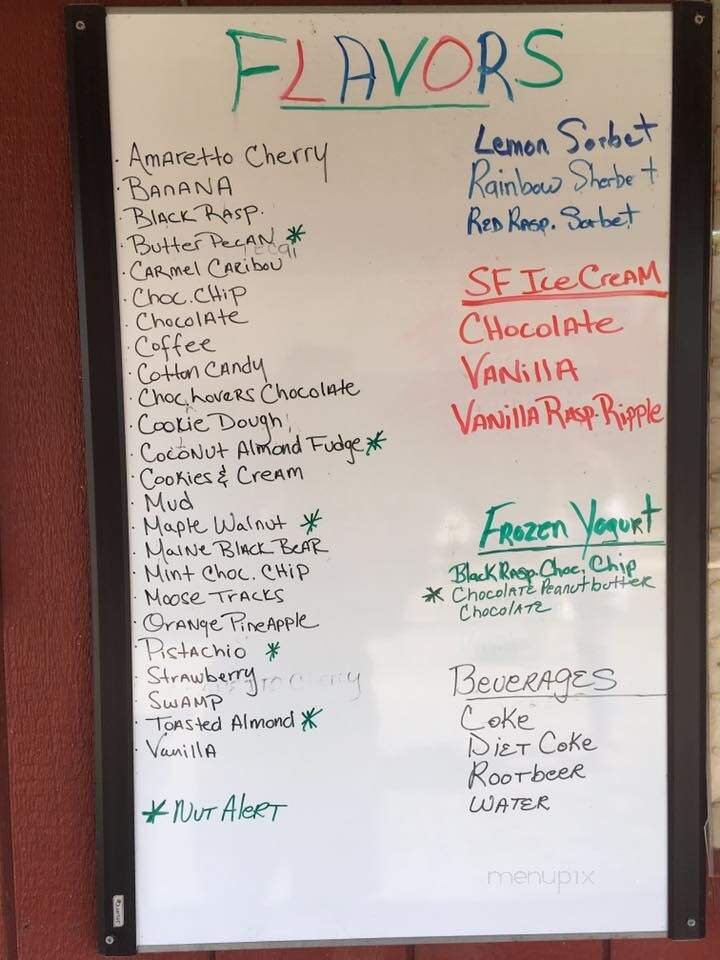 FLAVORS
· Amaretto Cherry
· Banana
· Black Rasp.
· Butter Pecan *
· Carmel Caribou
· Choc. Chip
· Chocolate
· Coffee
· Cotton Candy
· Choc. Lovers Chocolate
· Cookie Dough
· Coconut Almond Fudge *
· Cookies & Cream
· Mud
· Maple Walnut *
· Maine Black Bear
· Mint Choc. Chip
· Moose Tracks
· Orange Pineapple
· Pistachio *
· Strawberry
· Swamp
· Toasted Almond *
· Vanilla
* Nut Alert
Lemon Sorbet
Rainbow Sherbet
Red Rasp. Sorbet
SF Ice Cream
Chocolate
Vanilla
Vanilla Rasp. Ripple
Frozen Yogurt
Black Rasp. Choc. Chip
* Chocolate Peanutbutter
Chocolate
Beverages
Coke
Diet Coke
Rootbeer
Water
menupix